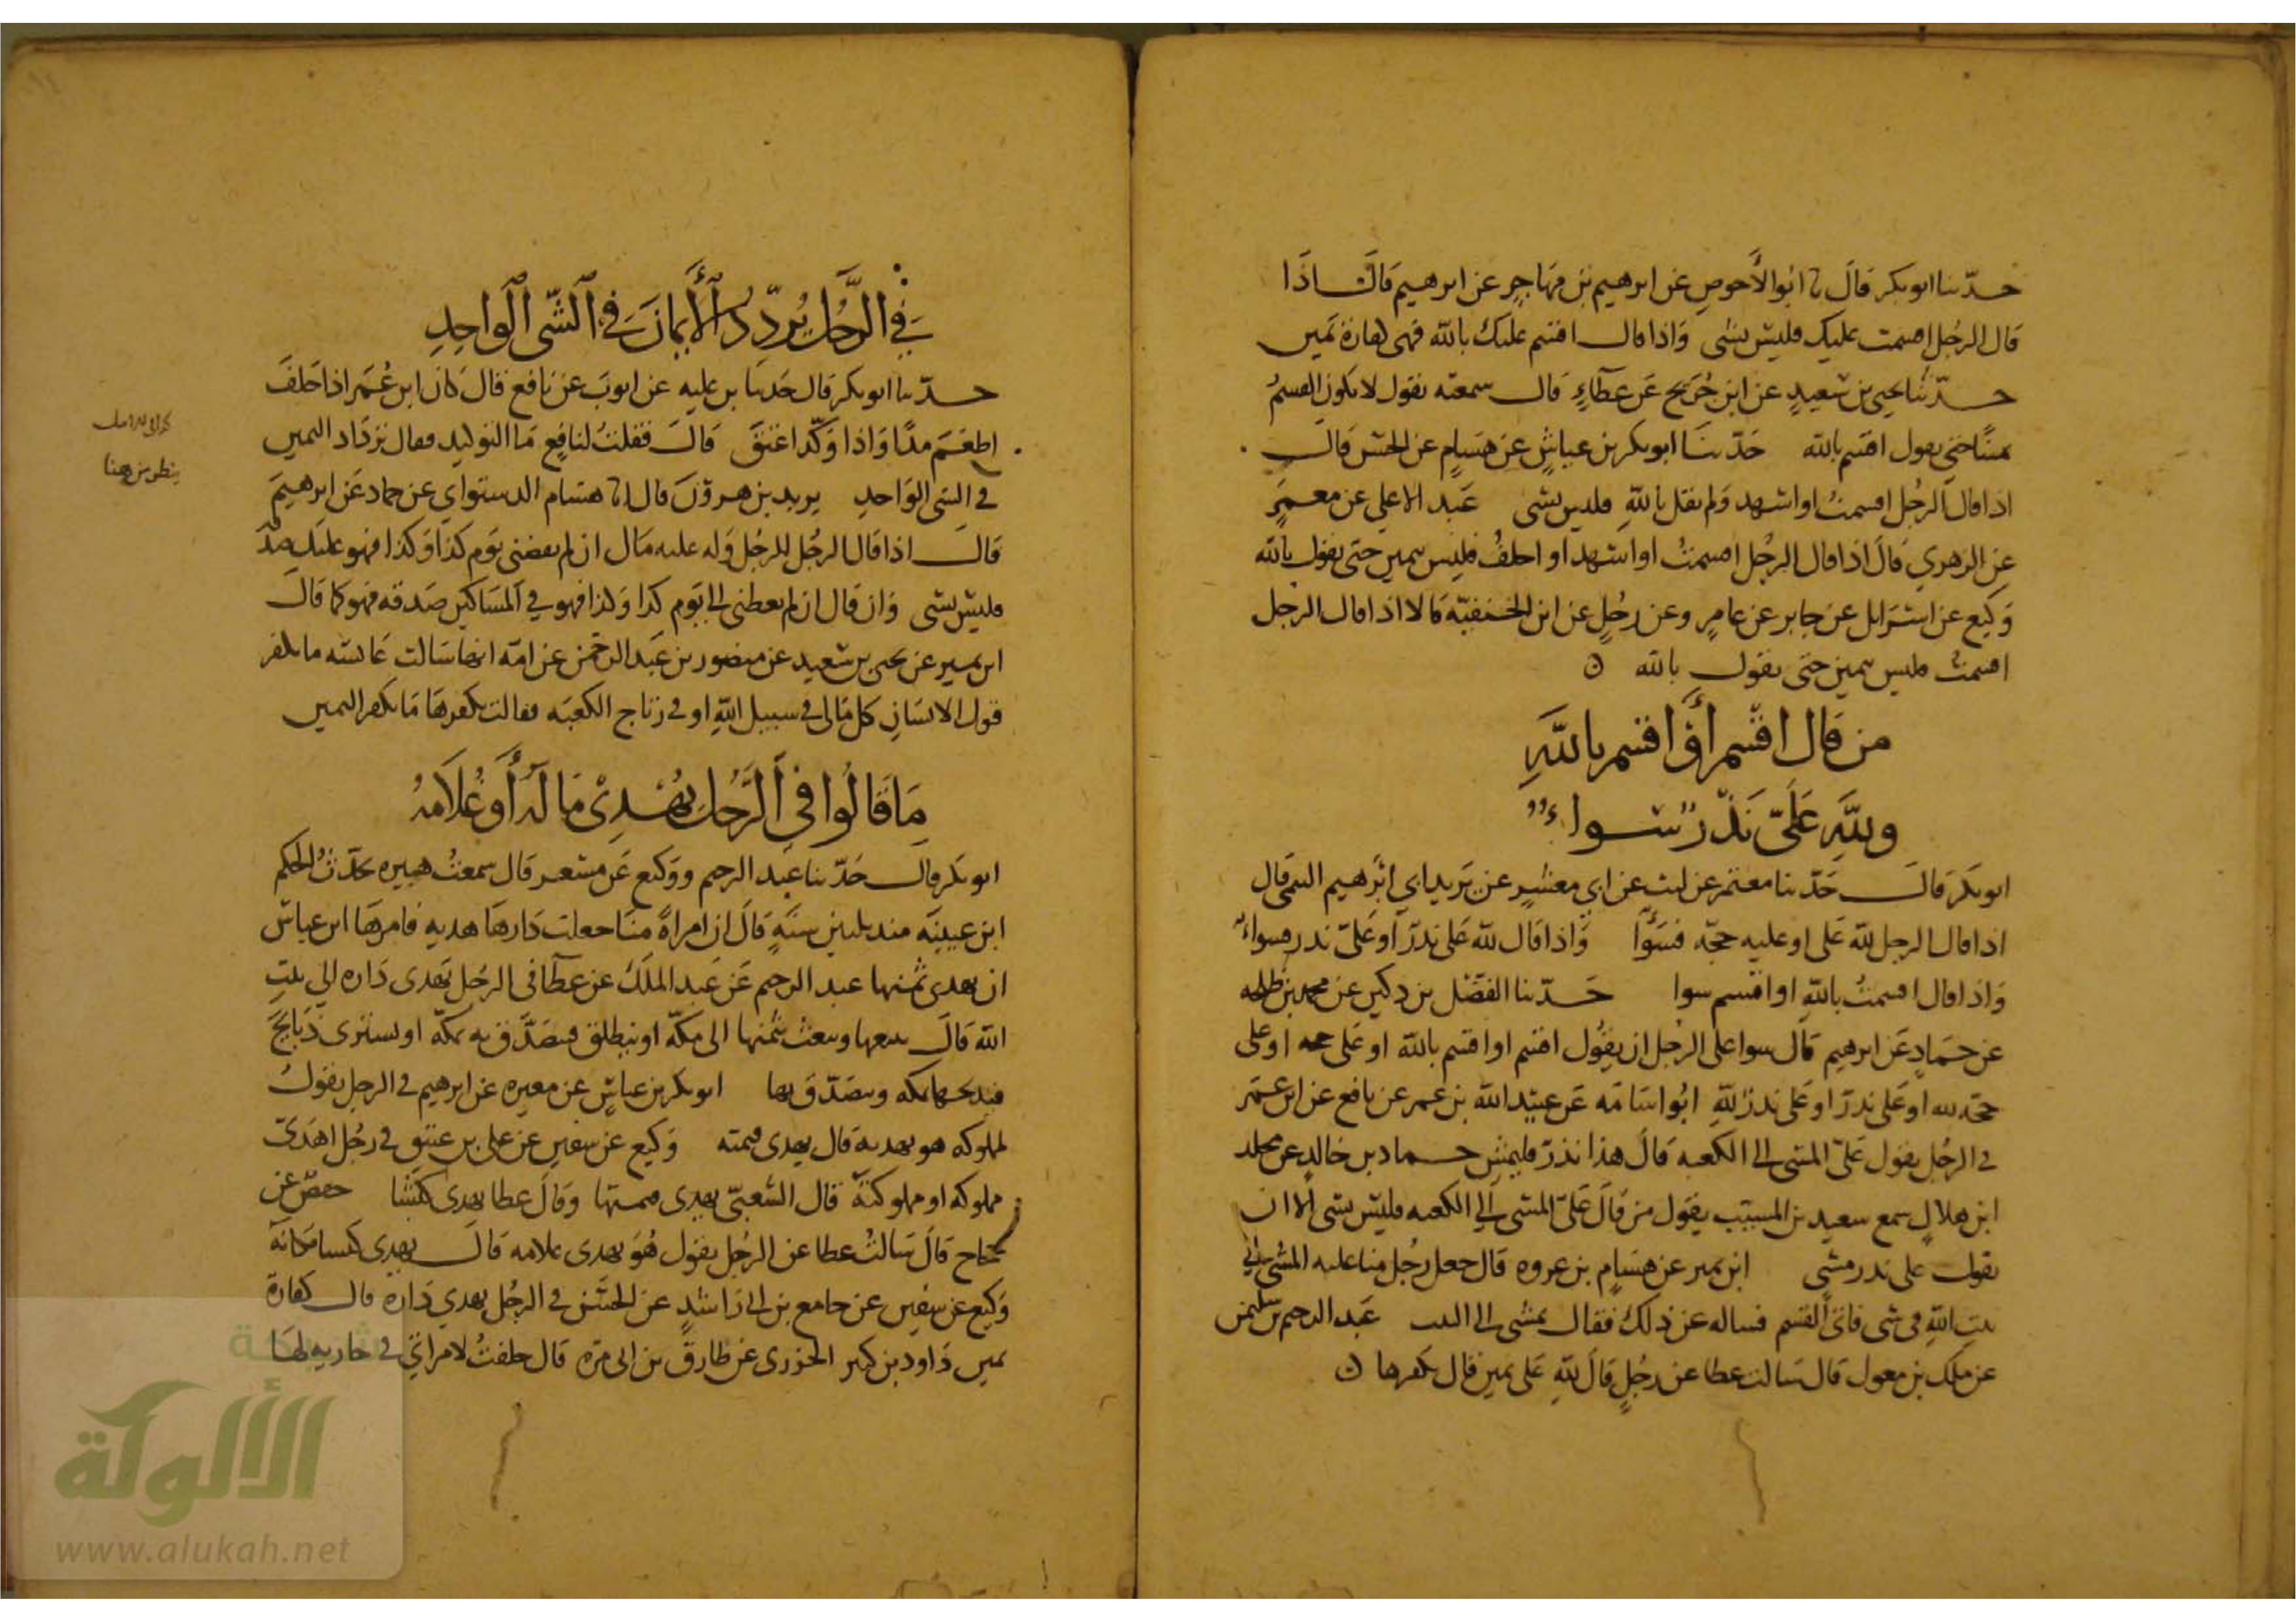 حدثنا ابو بكر قال نا ابو الأحوص عن ابرهيم بن مهاجر عن ابرهيم قال اذا
قال الرجل اقسمت عليك فليس بشى واذا قال اقسم عليك بالله فهى كفارة يمين
حدثنا يحيى بن سعيد عن ابن جريج عن عطاء قال سمعته يقول لا يكون القسم
حتى يقول اقسم بالله حدثنا ابو بكر بن عياش عن هشام عن الحسن قال
اذا قال الرجل اقسمت او اشهد ولم يقل بالله فليس بشى عبد الاعلى عن معمر
عن الزهري قال اذا قال الرجل اقسمت او اشهد او احلف فليس بيمين حتى يقول بالله
وكيع عن اسرايل عن جابر عن عامر وعن رجل عن ابن الحنفيّة قالا اذا قال الرجل
اقسمت فليس بيمين حتى يقول بالله
من قال اقسم أو اقسم بالله
ولله علىّ نذر سواء
ابو بكر قال حدثنا معتمر عن ليث عن ابى معشر عن يزيد ابى ابرهيم التيمى قال
اذا قال الرجل لله على او عليه حجّه فسوآ واذا قال لله على نذر او علىّ نذر فسواء
واذا قال اقسمت بالله او اقسم سوا حدثنا الفضل بن دكين عن محمد بن طلحه
عن حماد عن ابرهيم قال سوا على الرجل ان يقول اقسم او اقسم بالله او على حجه او على
حجّه لله او على نذر او على نذر لله ابو اسامه عن عبيد الله بن عمر عن نافع عن ابن عمر
في الرجل يقول علىّ المشى الى الكعبه قال هذا نذر فليمش حماد بن خالد عن محمد
ابن هلال سمع سعيد بن المسيّب يقول من قال علىّ المشى الى الكعبه فليس بشى الا ان
يقول على نذر مشى ابن نمير عن هشام بن عروه قال جعل رجل منا عليه المشى الى
بيت الله في شى فاتى القسم فساله عن ذلك فقال يمشى الى البيت عبد الرحيم بن سليمن
عن ملك بن مغول قال سالت عطا عن رجل قال لله على يمين قال يكفرها
في الرّجل يردّد الأيمان في الشّى الواحد
حدثنا ابو بكر قال حدثنا بن عليه عن ايوب عن نافع قال كان ابن عمر اذا حلف
اطعم مدًّا واذا وكّد اعتق قال فقلت لنافع ما التوكيد فقال يردّد اليمين
في الشى الواحد يزيد بن هرون قال انا هشام الدستواي عن حماد عن ابرهيم
قال اذا قال الرجل للرجل وله عليه مال ان لم يقضنى يوم كذا وكذا فهو عليك صدقة
فليس بشى وان قال ان لم يعطنى الى يوم كذا وكذا فهو في المساكين صدقه فهو كما قال
ابن نمير عن يحيى بن سعيد عن منصور بن عبد الرحمن عن امّه انها سالت عايشه ما يكفر
قول الانسان كل مالى في سبيل الله او في رتاج الكعبه فقالت يكفرها ما يكفر اليمين
ما قالوا في الرّجل يهدى ماله أو غلامه
ابو بكر قال حدثنا عبد الرحيم ووكيع عن مسعر قال سمعت هبيره يحدّث الحكم
ابن عيينه منذ ثلثين سنة قال ان امراة منا جعلت دارها هديه فامرها ابن عباس
ان تهدى ثمنها عبد الرحيم عن عبد الملك عن عطا في الرجل يهدى داره الى بيت
الله قال يبيعها ويبعث بثمنها الى مكّه او ينطلق فيتصدّق به بمكّه او يشترى ذبايح
فيذبحها بمكه ويتصدّق بها ابو بكر بن عياش عن مغيره عن ابرهيم في الرجل يقول
لمملوكه هو يهديه قال يهدى قيمته وكيع عن سفين عن على بن عتيق في رجل اهدى
مملوكه او مملوكته قال الشعبىّ يهدى قيمتها وقال عطا يهدى كبشا حفص عن
حجاج قال سالت عطا عن الرجل يقول هو يهدى غلامه قال يهدى كبسا مكانه
وكيع عن سفين عن جامع بن ابى راشد عن الحسن في الرجل يهدي داره قال كفارة
يمين داود بن كثير الجزرى عن طارق بن ابى مره قال حلفت لامراتي في جاريه لها
ينظر من هنا
الألوكة
www.alukah.net